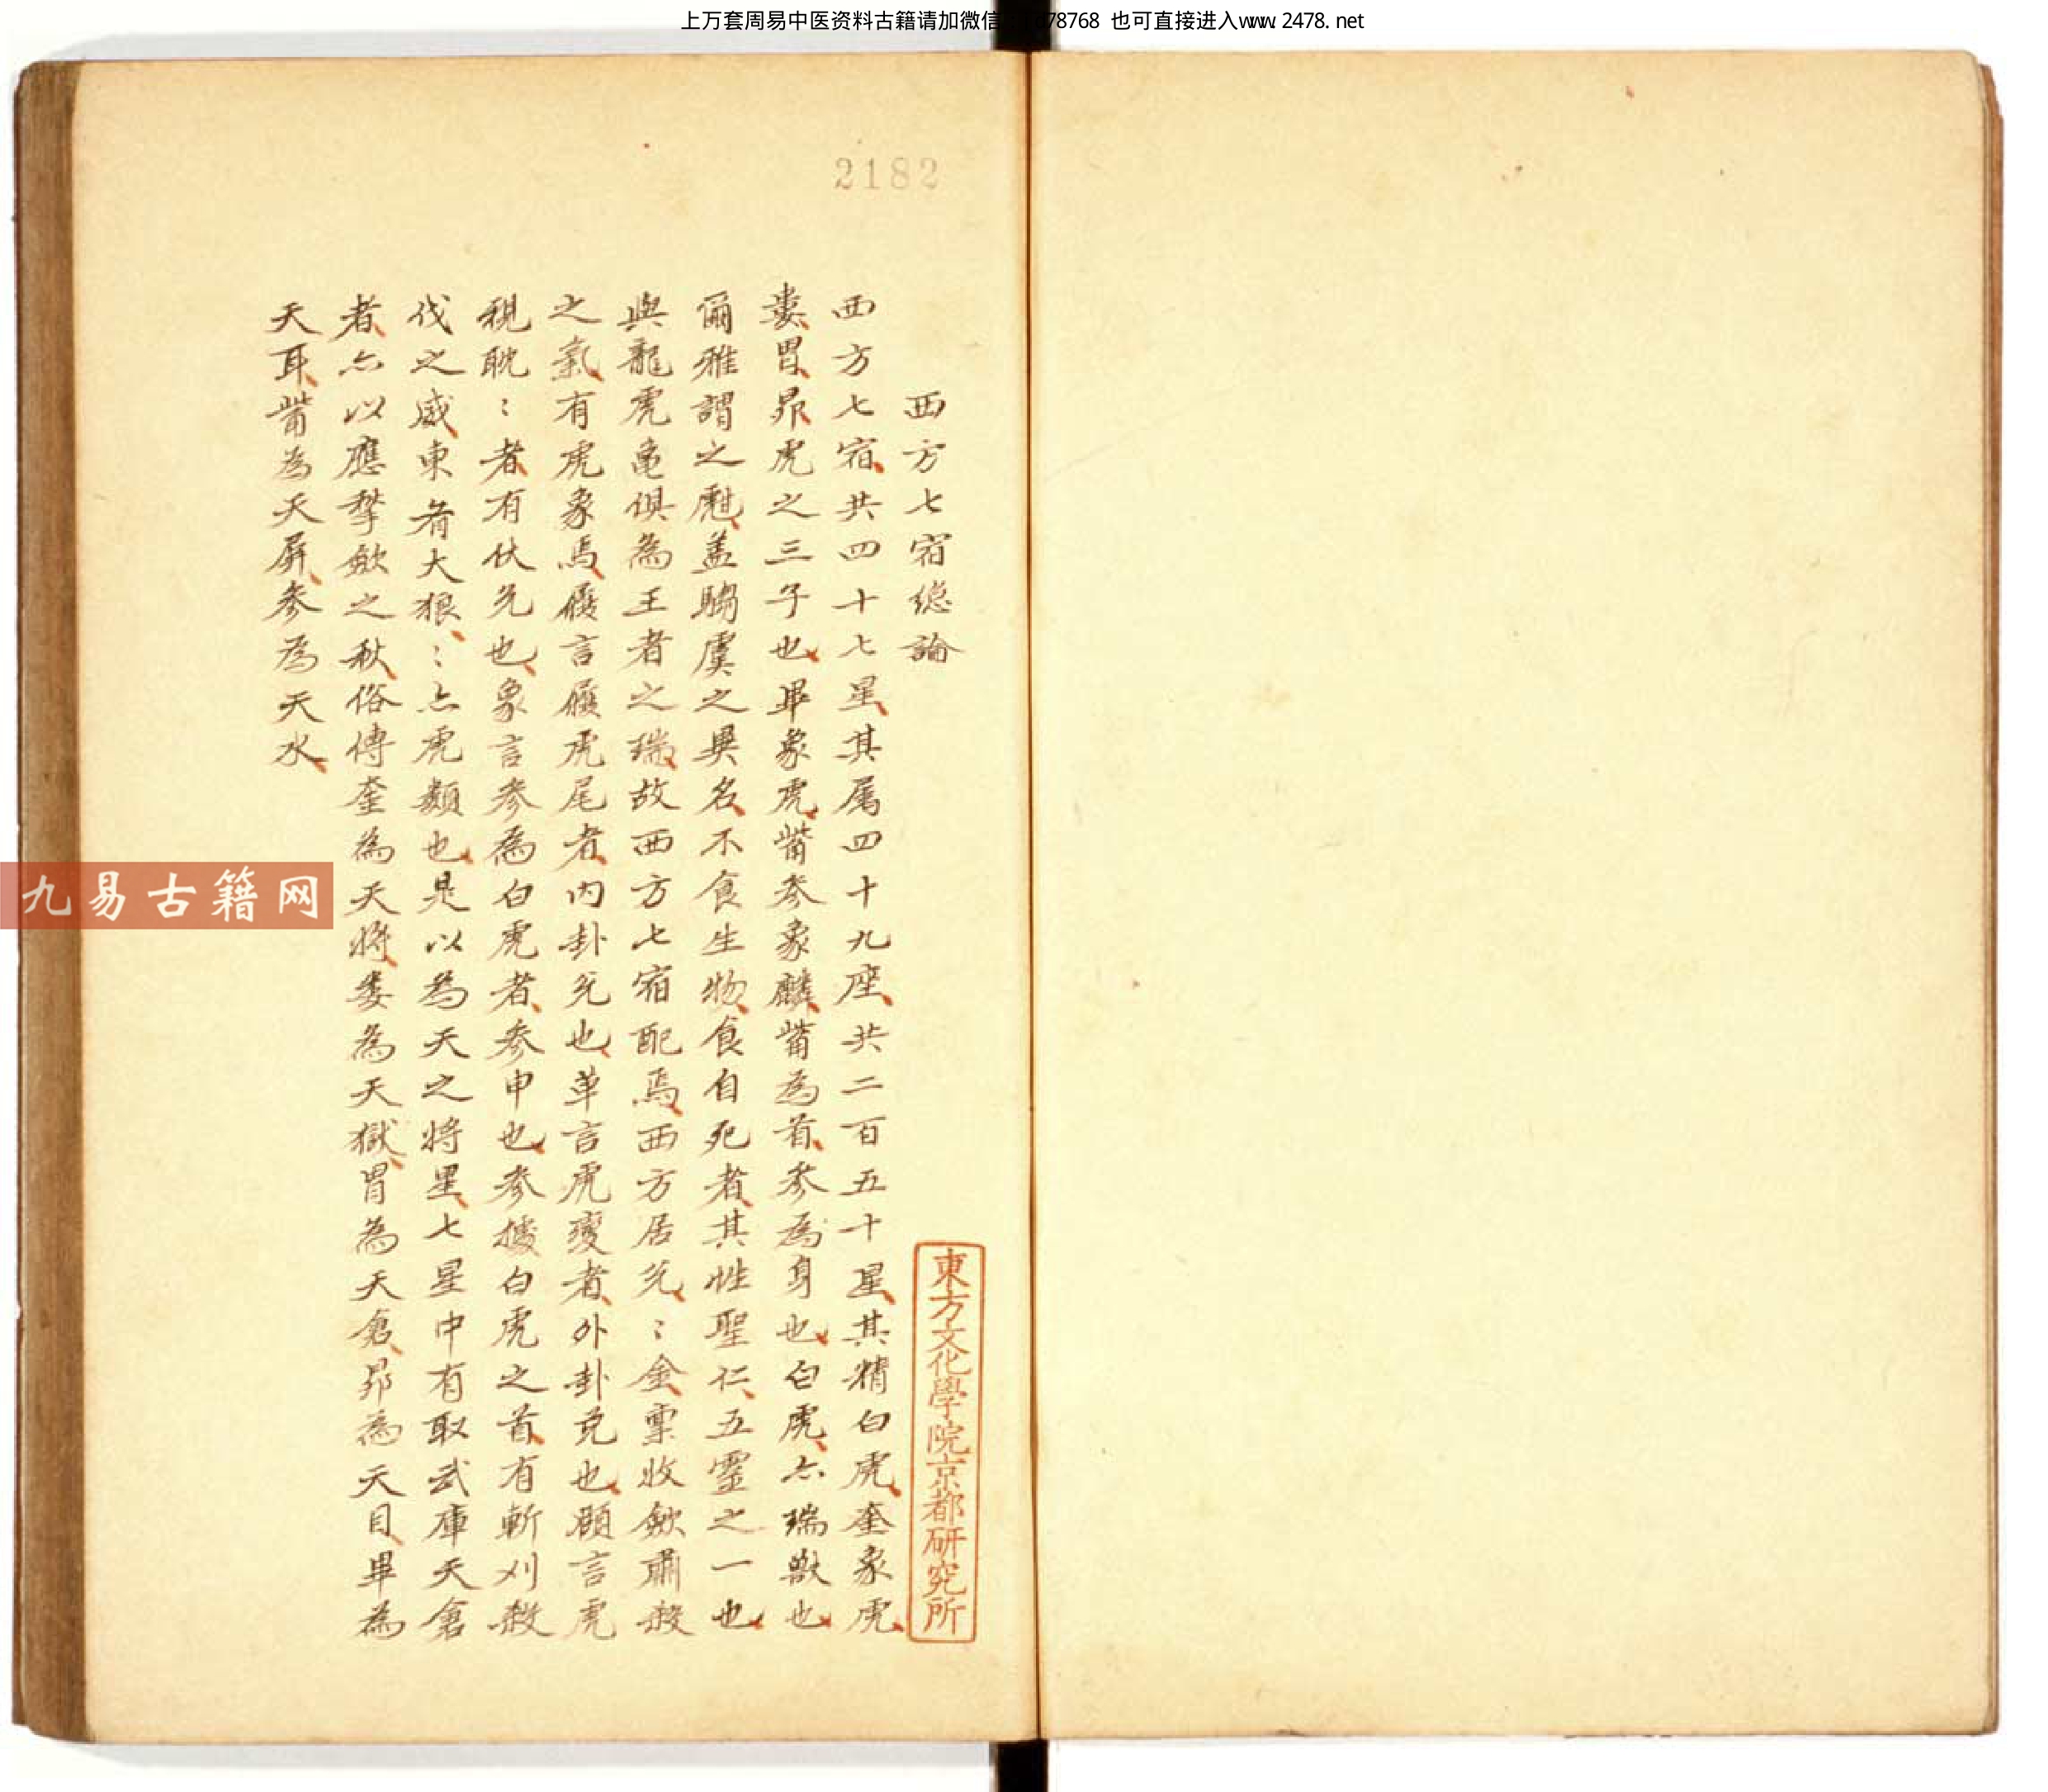 上万套周易中医资料古籍请加微信 78768 也可直接进入www.2478.net
2182
西方七宿總論
西方七宿共四十七星其属四十九座共二百五十星其精白虎奎象虎
婁胃昴虎之三子也畢象虎觜参象麟觜為首参為身也白虎亦瑞獸也
爾雅謂之甝盖騶虞之異名不食生物食自死者其性聖仁五靈之一也
與龍虎亀俱為王者之瑞故西方七宿配焉西方居兊〻金稟收斂肅殺
之氣有虎象焉履言履虎尾者内卦兊也革言虎變者外卦兊也頤言虎
視耽〻者有伏兊也象言参為白虎者参申也参擾白虎之首有斬刈殺
伐之威東有大狼〻亦虎類也是以為天之将星七星中有取武庫天倉
者亦以應擊斂之秋俗傳奎為天將婁為天獄胃為天倉昴為天目畢為
天耳觜為天屏参為天水
東方文化學院京都研究所
九易古籍网